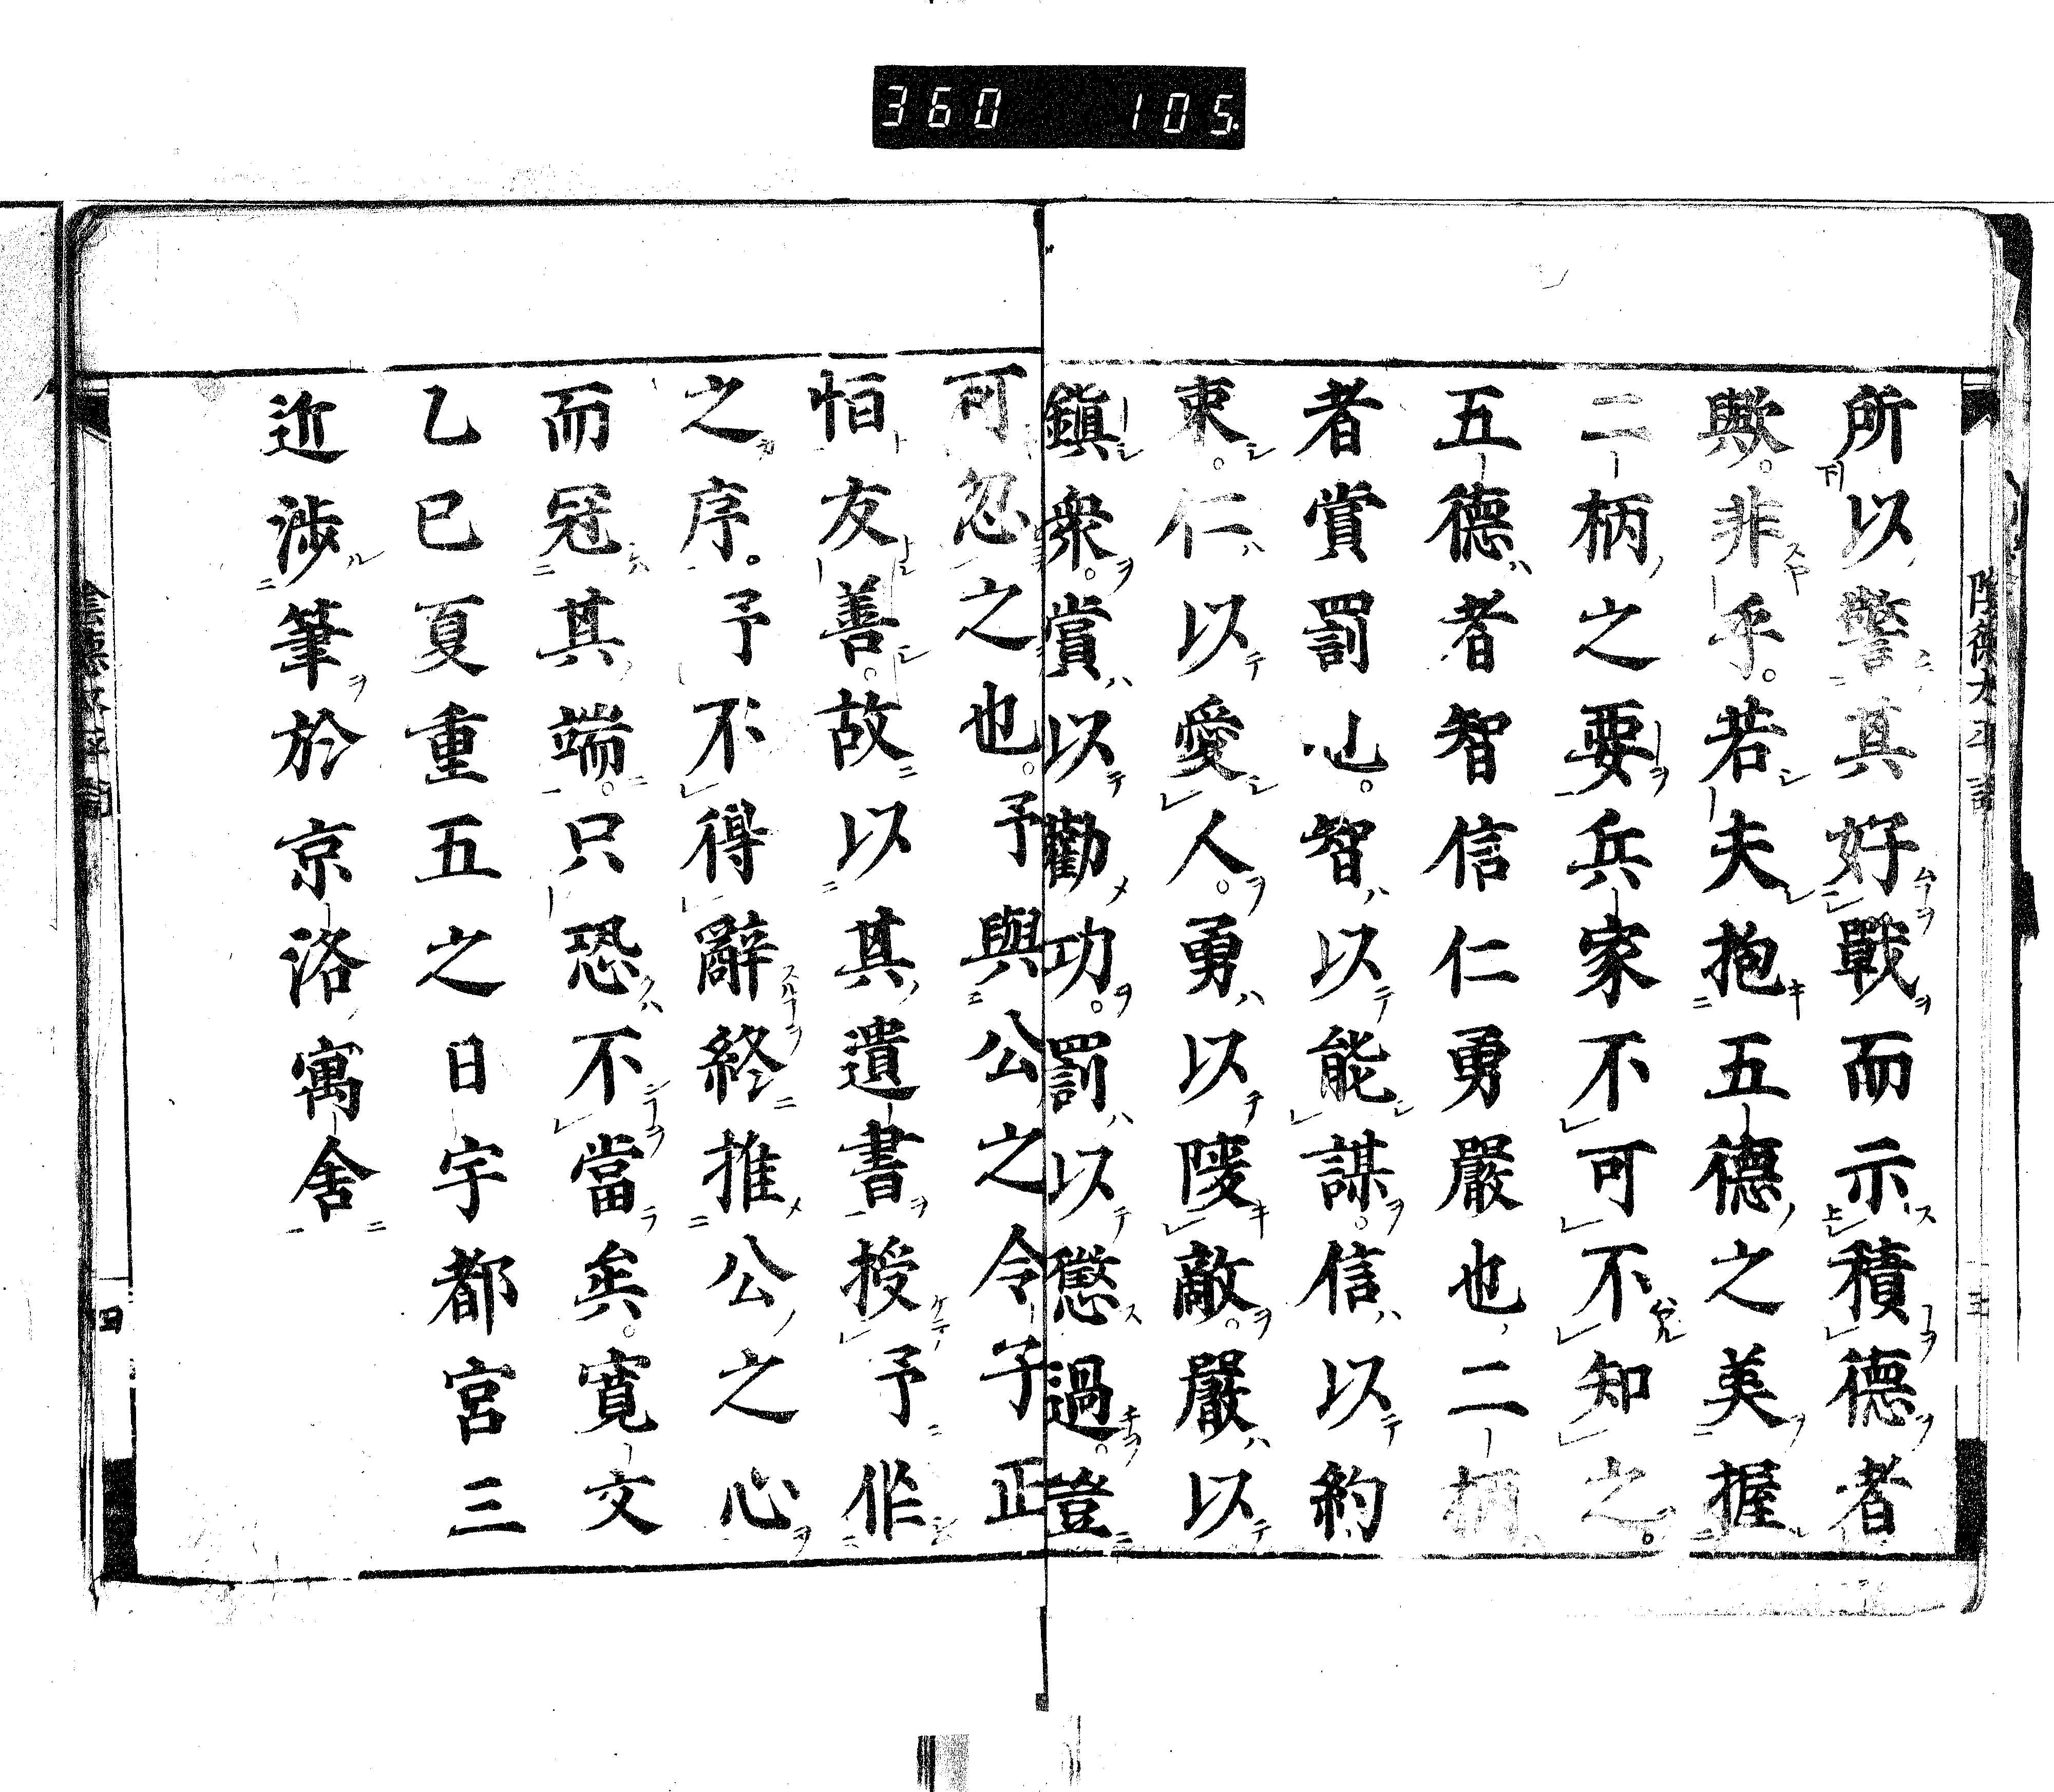 360 105
陰德太平記
三
所以警其好戰而示積德者
歟。非乎。若夫抱五德之美握
二柄之要兵家不可不知之。
五德者智信仁勇嚴也二柄
者賞罰也。智以能謀。信以約
束。仁以愛人。勇以陵敵。嚴以
鎮衆。賞以勸功。罰以懲過。豈
可忽之也。予與公之令子正
恒友善。故以其遺書授予作
之序。予不得辭終推公之心
而冠其端。只恐不當矣。寛文
乙巳夏重五之日宇都宮三
近渉筆於京洛寓舍
陰德太平記
四